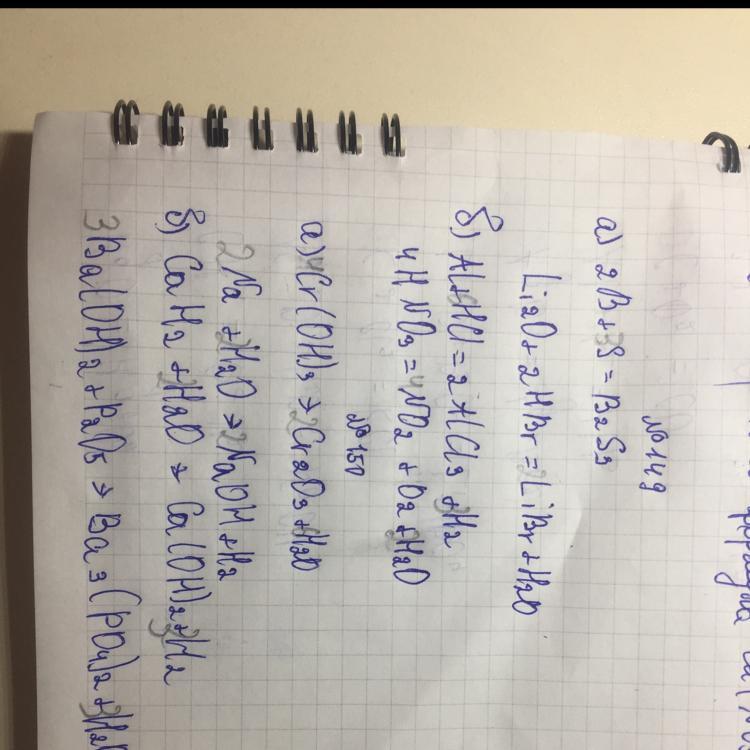 №149
а) 2B + 3S = B2S3
Li2O + 2HBr = 2LiBr + H2O
б) Al + 6HCl = 2AlCl3 + 3H2
4HNO3 = 4NO2 + O2 + 2H2O
№150
а) 4Cr(OH)3 → 2Cr2O3 + H2O
2Na + 2H2O → 2NaOH + H2
б) CaH2 + 2H2O → Ca(OH)2 + 2H2
3Ba(OH)2 + P2O5 → Ba3(PO4)2 + 3H2O